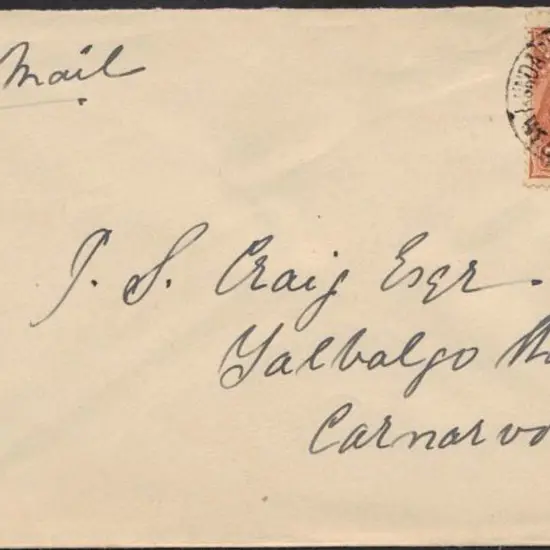 Mail
P. S. Craig Esqr.
Yalbalgo
Carnarvo